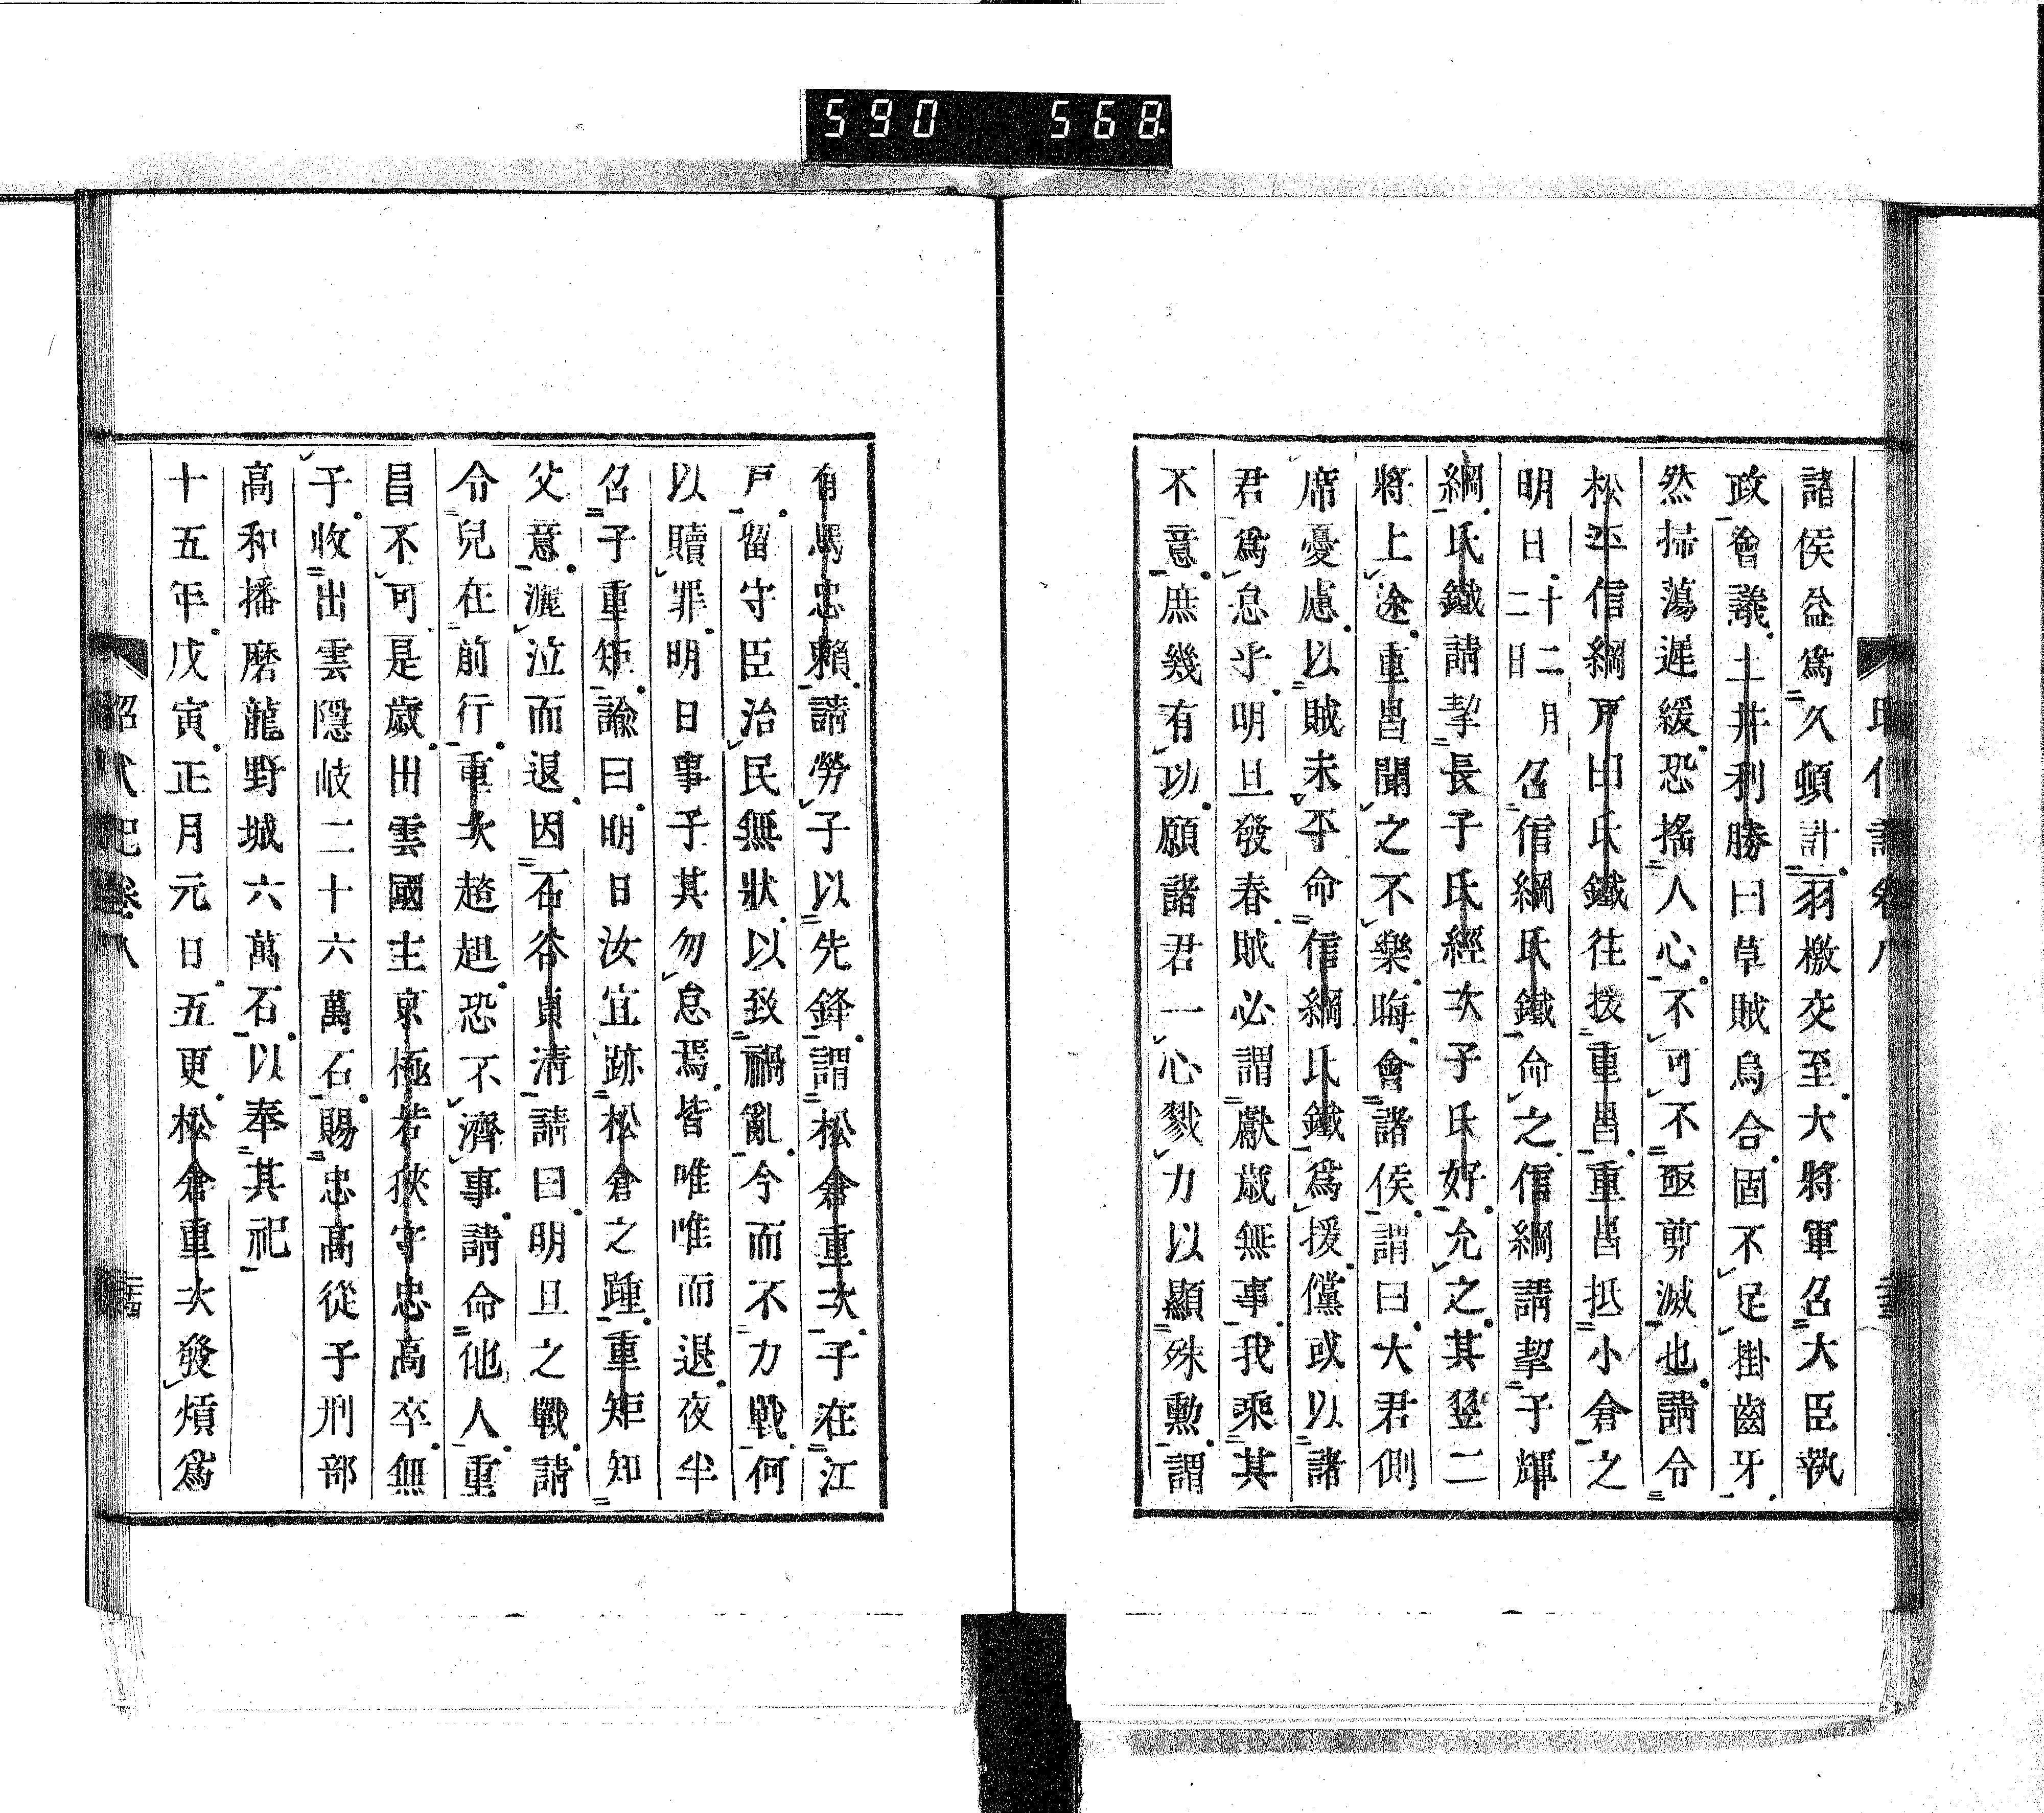 590 568
諸侯益爲久頓計羽檄交至大將軍召大臣執
政會議土井利勝曰草賊烏合固不足掛齒牙
然掃蕩遲緩恐搖人心不可不亟剪滅也請令
松平信綱戸田氏鐵往援重昌重昌抵小倉之
明日十二月二日召信綱氏鐵命之信綱請挈子輝
綱氏鐵請挈長子氏經次子氏好允之其翌二
將上途重昌聞之不樂晦會諸侯謂曰大君側
席憂慮以賊未平命信綱氏鐵爲援儻或以諸
君爲怠乎明旦發春賊必謂獻歲無事我乘其
不意庶幾有功願諸君一心戮力以顯殊勳謂
有馬忠賴請勞子以先鋒謂松倉重次子在江
戸留守臣治民無狀以致禍亂今而不力戰何
以贖罪明日事子其勿怠焉皆唯唯而退夜半
召子重矩諭曰明日汝宜跡松倉之踵重矩知
父意灑泣而退因石谷貞清請曰明旦之戰請
令兒在前行重次趦趄恐不濟事請命他人重
昌不可是歲出雲國主京極若狹守忠高卒無
子收出雲隱岐二十六萬石賜忠高從子刑部
高和播磨龍野城六萬石以奉其祀
十五年戊寅正月元日五更松倉重次發煩爲
昭代記卷八